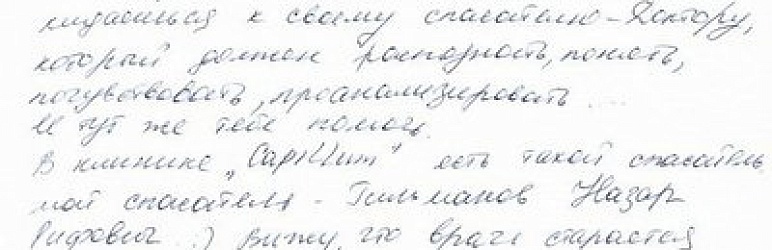 кидаешься к своему спасателю-Доктору,
который должен распознать, понять,
почувствовать, проанализировать...
И тут же тебе помочь.
В клинике „Capillum" есть такой спасатель
мой спасатель - Гильманов Назар
Рифович :) Вижу, что врач старается